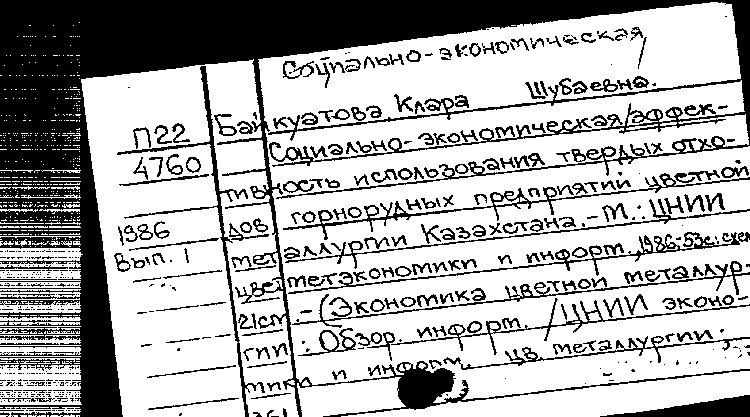 Социально-экономическая
Байкуатова Клара Шубаевна.
П22 Социально-экономическая/эффек-
4760 тивность использования твердых отхо-
дов горнорудных предприятий цветной
1986 металлургии Казахстана.-М.: ЦНИИ
Вып. 1 цветметэкономики и информ., 1986.-53с.:схем
21см.-(Экономика цветной металлур-
гии: Обзор. информ. /ЦНИИ эконо-
мики и информ. цв. металлургии;